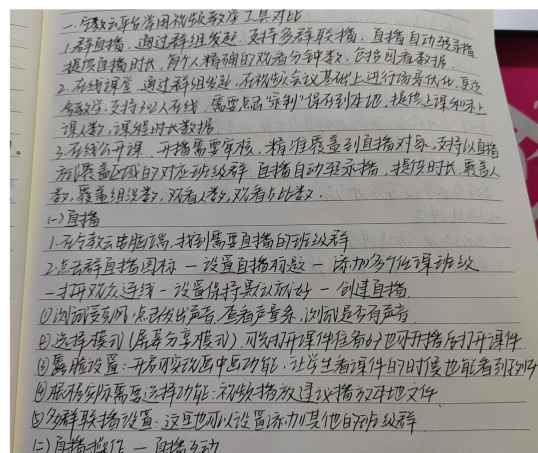 一、宁教云平台常用视频教学工具对比
1.群直播,通过群组发起,支持多群联播,直播自动录播
提供直播时长,每个人精确的观看分钟数,包括回看数据
2.在线课堂,通过群组发起,在视频会议基础上进行场景优化,更适
合教学,支持302人在线,需要点击"录制"保存到本地,提供上课和未上
课人数,课程时长数据.
3.在线公开课,开播需要审核,精准覆盖到直播对象,支持以直播
方到覆盖区域的对应班级群,直播自动录播,提供时长,覆盖人
数,覆盖组织数,观看人数,观看占比数.
(一)直播
1.在宁教云电脑端,找到需要直播的班级群
2.点击群直播图标一设置直播标题一添加多个任课班级
一打开观众连线一设置保持默认就好一创建直播.
①测试音频,点击发出声音,查看声量条,测试是否有声音
②选择模式(屏幕分享模式),可先打开课件准备好也可开播后打开课件
③露脸设置:开启可实现画中画功能,让学生看课件的时候也能看到老师
④根据实际需要选择功能:视频播放建议播放本地文件
⑤多群联播设置:这里也可以设置添加其他的班级群
(二)直播操作一直播互动